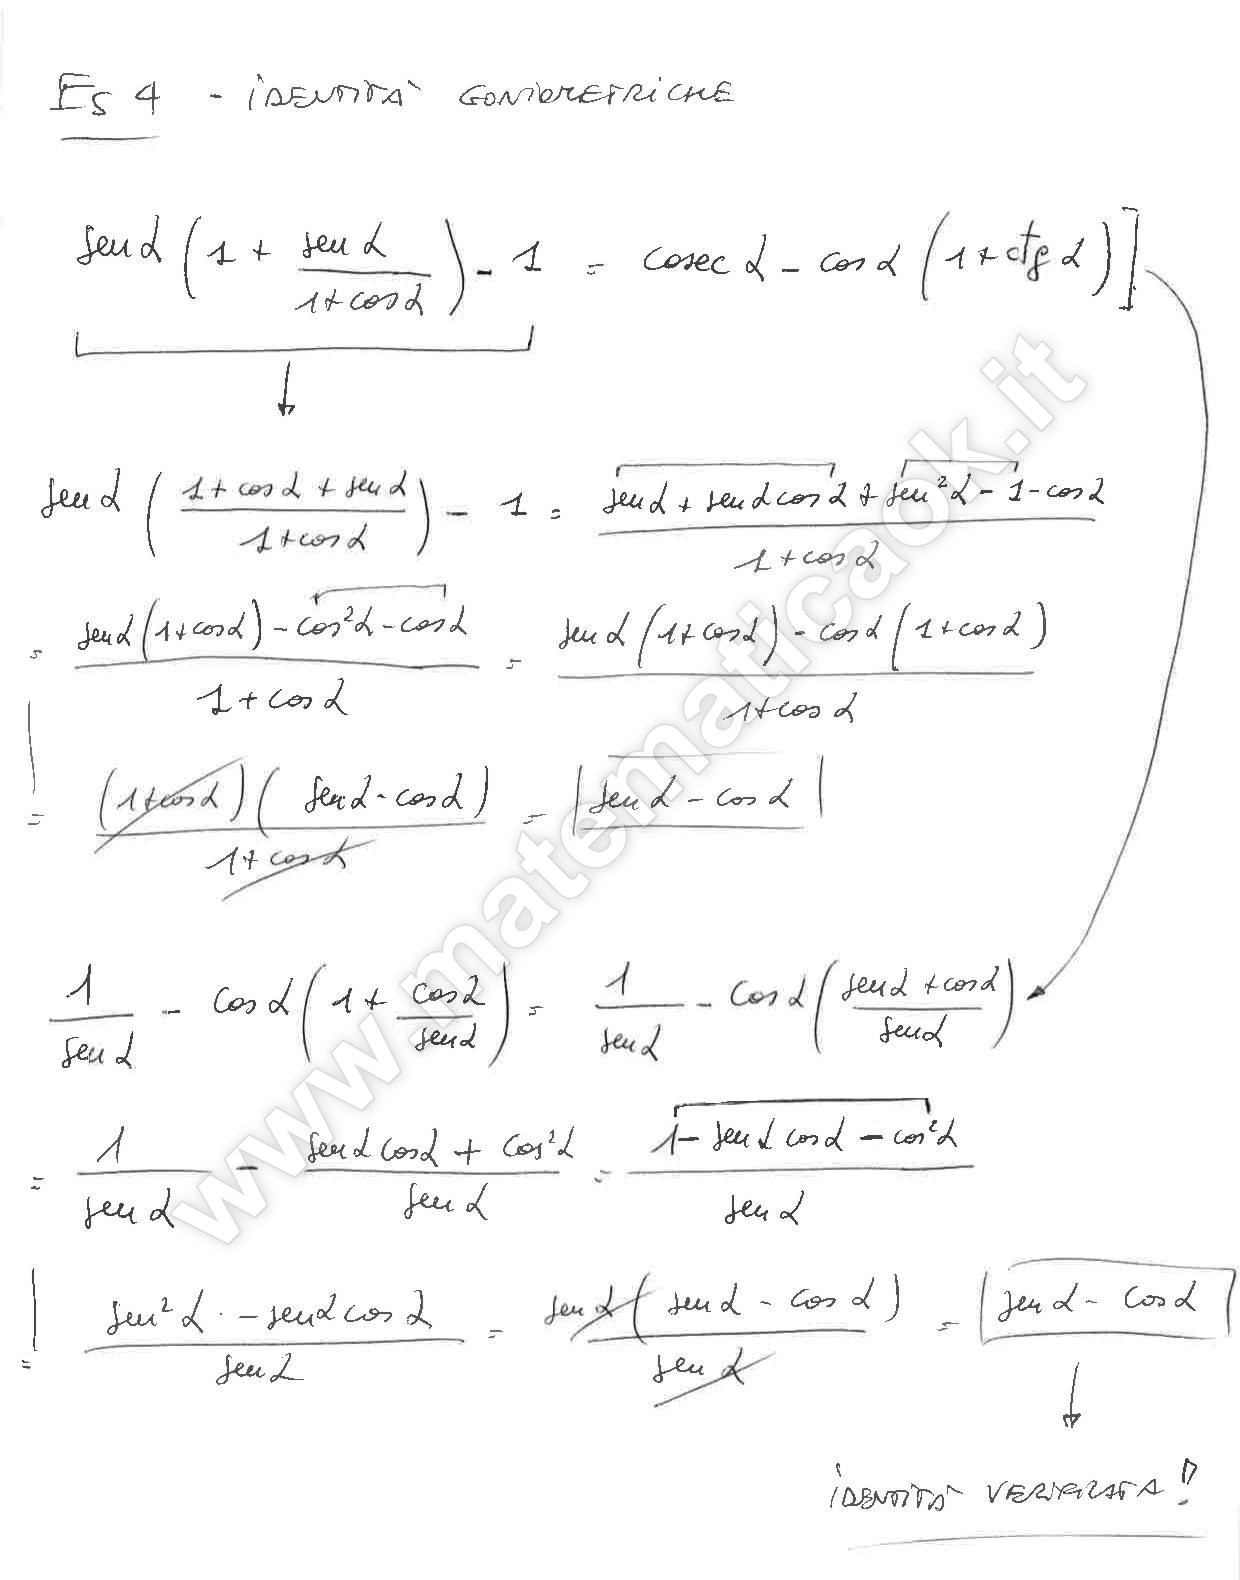 ES 4 - IDENTITÀ GONIOMETRICHE
sen α (1 + sen α / 1+cos α) - 1 = cosec α - cos α (1 + ctg α)]
sen α (1+cos α + sen α / 1+cos α) - 1 = sen α + sen α cos α + sen² α - 1 - cos α / 1+cos α
= sen α (1+cos α) - cos² α - cos α / 1+cos α = sen α (1+cos α) - cos α (1+cos α) / 1+cos α
= (1+cos α) (sen α - cos α) / 1+cos α = |sen α - cos α|
1 / sen α - cos α (1 + cos α / sen α) = 1 / sen α - cos α (sen α + cos α / sen α)
= 1 / sen α - sen α cos α + cos² α / sen α = 1 - sen α cos α - cos² α / sen α
= sen² α - sen α cos α / sen α = sen α (sen α - cos α) / sen α = sen α - cos α
IDENTITÀ VERIFICATA!
www.matematicaok.it